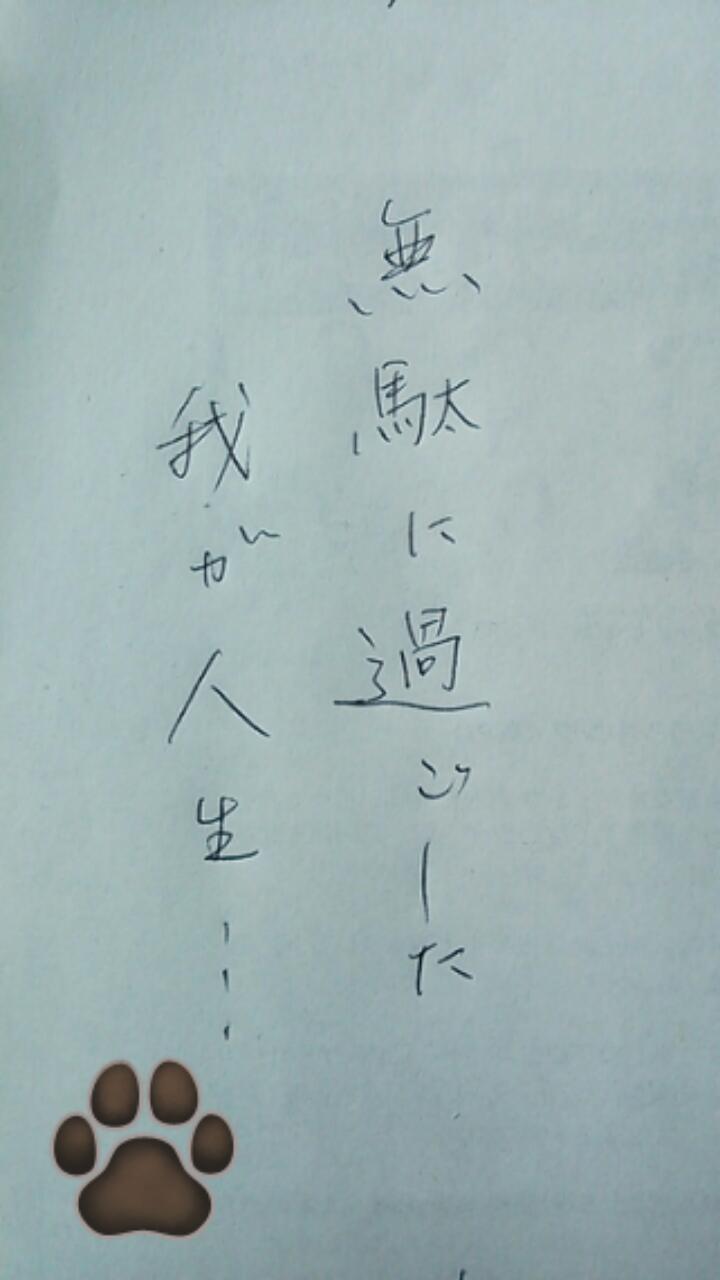 無駄に過ごした
我が人生…